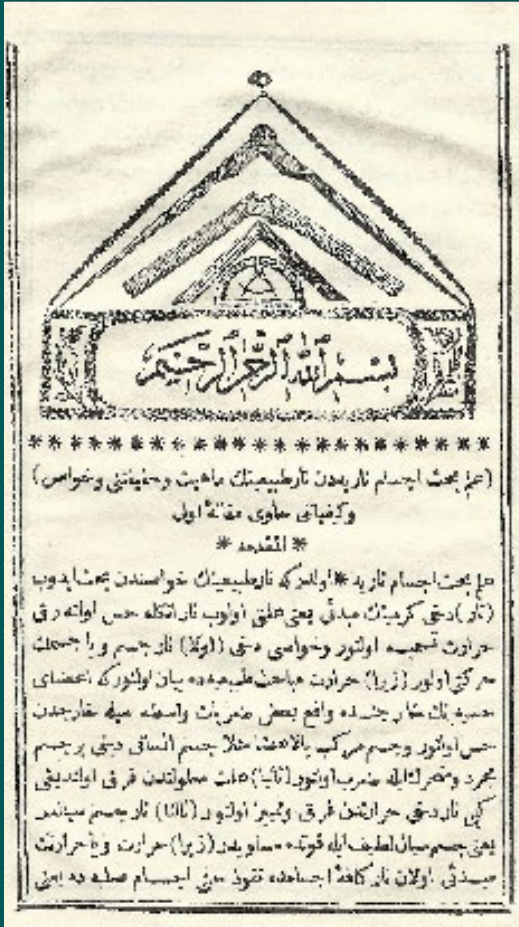 بسم الله الرحمن الرحيم
(علم بحث اجسام ناريه‌دن نار طبيعينك ماهيت وحقيقتنى وخواص)
وكيفياتى حاوى مقالهٔ اول
* المقدمه *
علم بحث اجسام ناريه * اولدركه نار طبيعينك خواصندن بحث ايدوب
(نار) دخى كرمينك مبدئى يعنى علتى اولوب نار اتكله حس اولنه رق
حرارت تسميه اولنور وخواصى دخى (اولا) نار جسم ويا جسمك
حركتى اولور (زيرا) حرارت مباحث طبيعيه‌ده بيان اولنور كه اعضاى
حسيه‌نك خارجنده واقع بعض ضربات واسطه سيله خارجدن
حس اولنور وجسم مركب بالاعضا مثلا جسم انسانى دينى بر جسم
مجرد ومتحرك ايله ضرب اولنور (ثانيا) علت معلولندن فرق اولنديغى
كبى نار دخى حرارتدن فرق وتمييز اولنور (ثالثا) نار جسم سيالدر
يعنى جسم سيال لطيف ايله قوتده مساويدر (زيرا) حرارت ويا حرارتك
مبدئى اولان نار كافهٔ اجسامده نفوذ يعنى اجسام صلبه ده يعنى